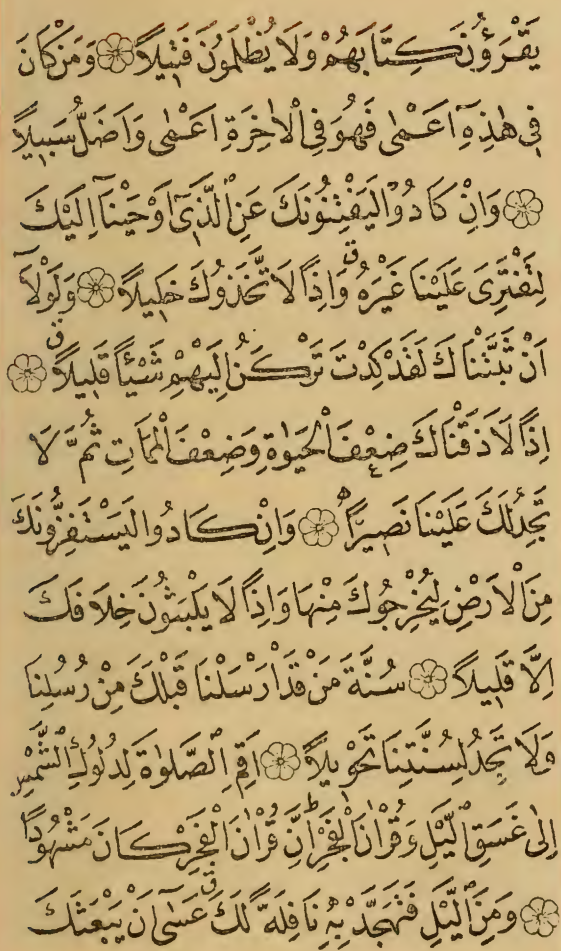 يَقْرَؤُنَ كِتَابَهُمْ وَلَا يُظْلَمُونَ فَتِيلًا ۝ وَمَنْ كَانَ
فِي هٰذِهِ اَعْمٰى فَهُوَ فِي الْاٰخِرَةِ اَعْمٰى وَاَضَلُّ سَبِيلًا
۝ وَاِنْ كَادُوا لَيَفْتِنُونَكَ عَنِ الَّذِي اَوْحَيْنَا اِلَيْكَ
لِتَفْتَرِيَ عَلَيْنَا غَيْرَهُ ۗ وَاِذًا لَاتَّخَذُوكَ خَلِيلًا ۝ وَلَوْلَا
اَنْ ثَبَّتْنَاكَ لَقَدْ كِدْتَ تَرْكَنُ اِلَيْهِمْ شَيْئًا قَلِيلًا ۝
اِذًا لَاَذَقْنَاكَ ضِعْفَ الْحَيٰوةِ وَضِعْفَ الْمَمَاتِ ثُمَّ لَا
تَجِدُ لَكَ عَلَيْنَا نَصِيرًا ۝ وَاِنْ كَادُوا لَيَسْتَفِزُّونَكَ
مِنَ الْاَرْضِ لِيُخْرِجُوكَ مِنْهَا وَاِذًا لَا يَلْبَثُونَ خِلَافَكَ
اِلَّا قَلِيلًا ۝ سُنَّةَ مَنْ قَدْ اَرْسَلْنَا قَبْلَكَ مِنْ رُسُلِنَا
وَلَا تَجِدُ لِسُنَّتِنَا تَحْوِيلًا ۝ اَقِمِ الصَّلٰوةَ لِدُلُوكِ الشَّمْسِ
اِلٰى غَسَقِ الَّيْلِ وَقُرْاٰنَ الْفَجْرِ ۗ اِنَّ قُرْاٰنَ الْفَجْرِ كَانَ مَشْهُودًا
۝ وَمِنَ الَّيْلِ فَتَهَجَّدْ بِهِ نَافِلَةً لَكَ ۗ عَسٰى اَنْ يَبْعَثَكَ